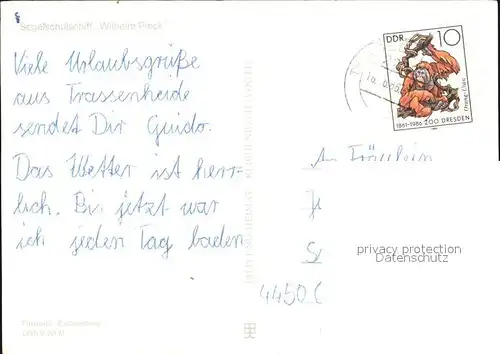 Segelschulschiff „Wilhelm Pieck“
Viele Urlaubsgrüße
aus Trassenheide
sendet Dir Guido.
Das Wetter ist herr-
lich. Bis jetzt war
ich jeden Tag baden
DDR 10
Orang-Utan
1861-1986 ZOO DRESDEN
An Fräulein
privacy protection
Datenschutz
4450